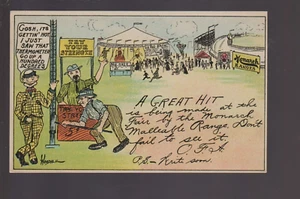 GOSH, ITS
GETTIN' HOT
I JUST
SAW THAT
THERMOMETER
GO UP A
HUNDRED
DEGREES
TRY
YOUR
STRENGTH
Monarch
RANGES
A GREAT HIT
is being made at the
Fair by the Monarch
Malleable Range. Don't
fail to see it.